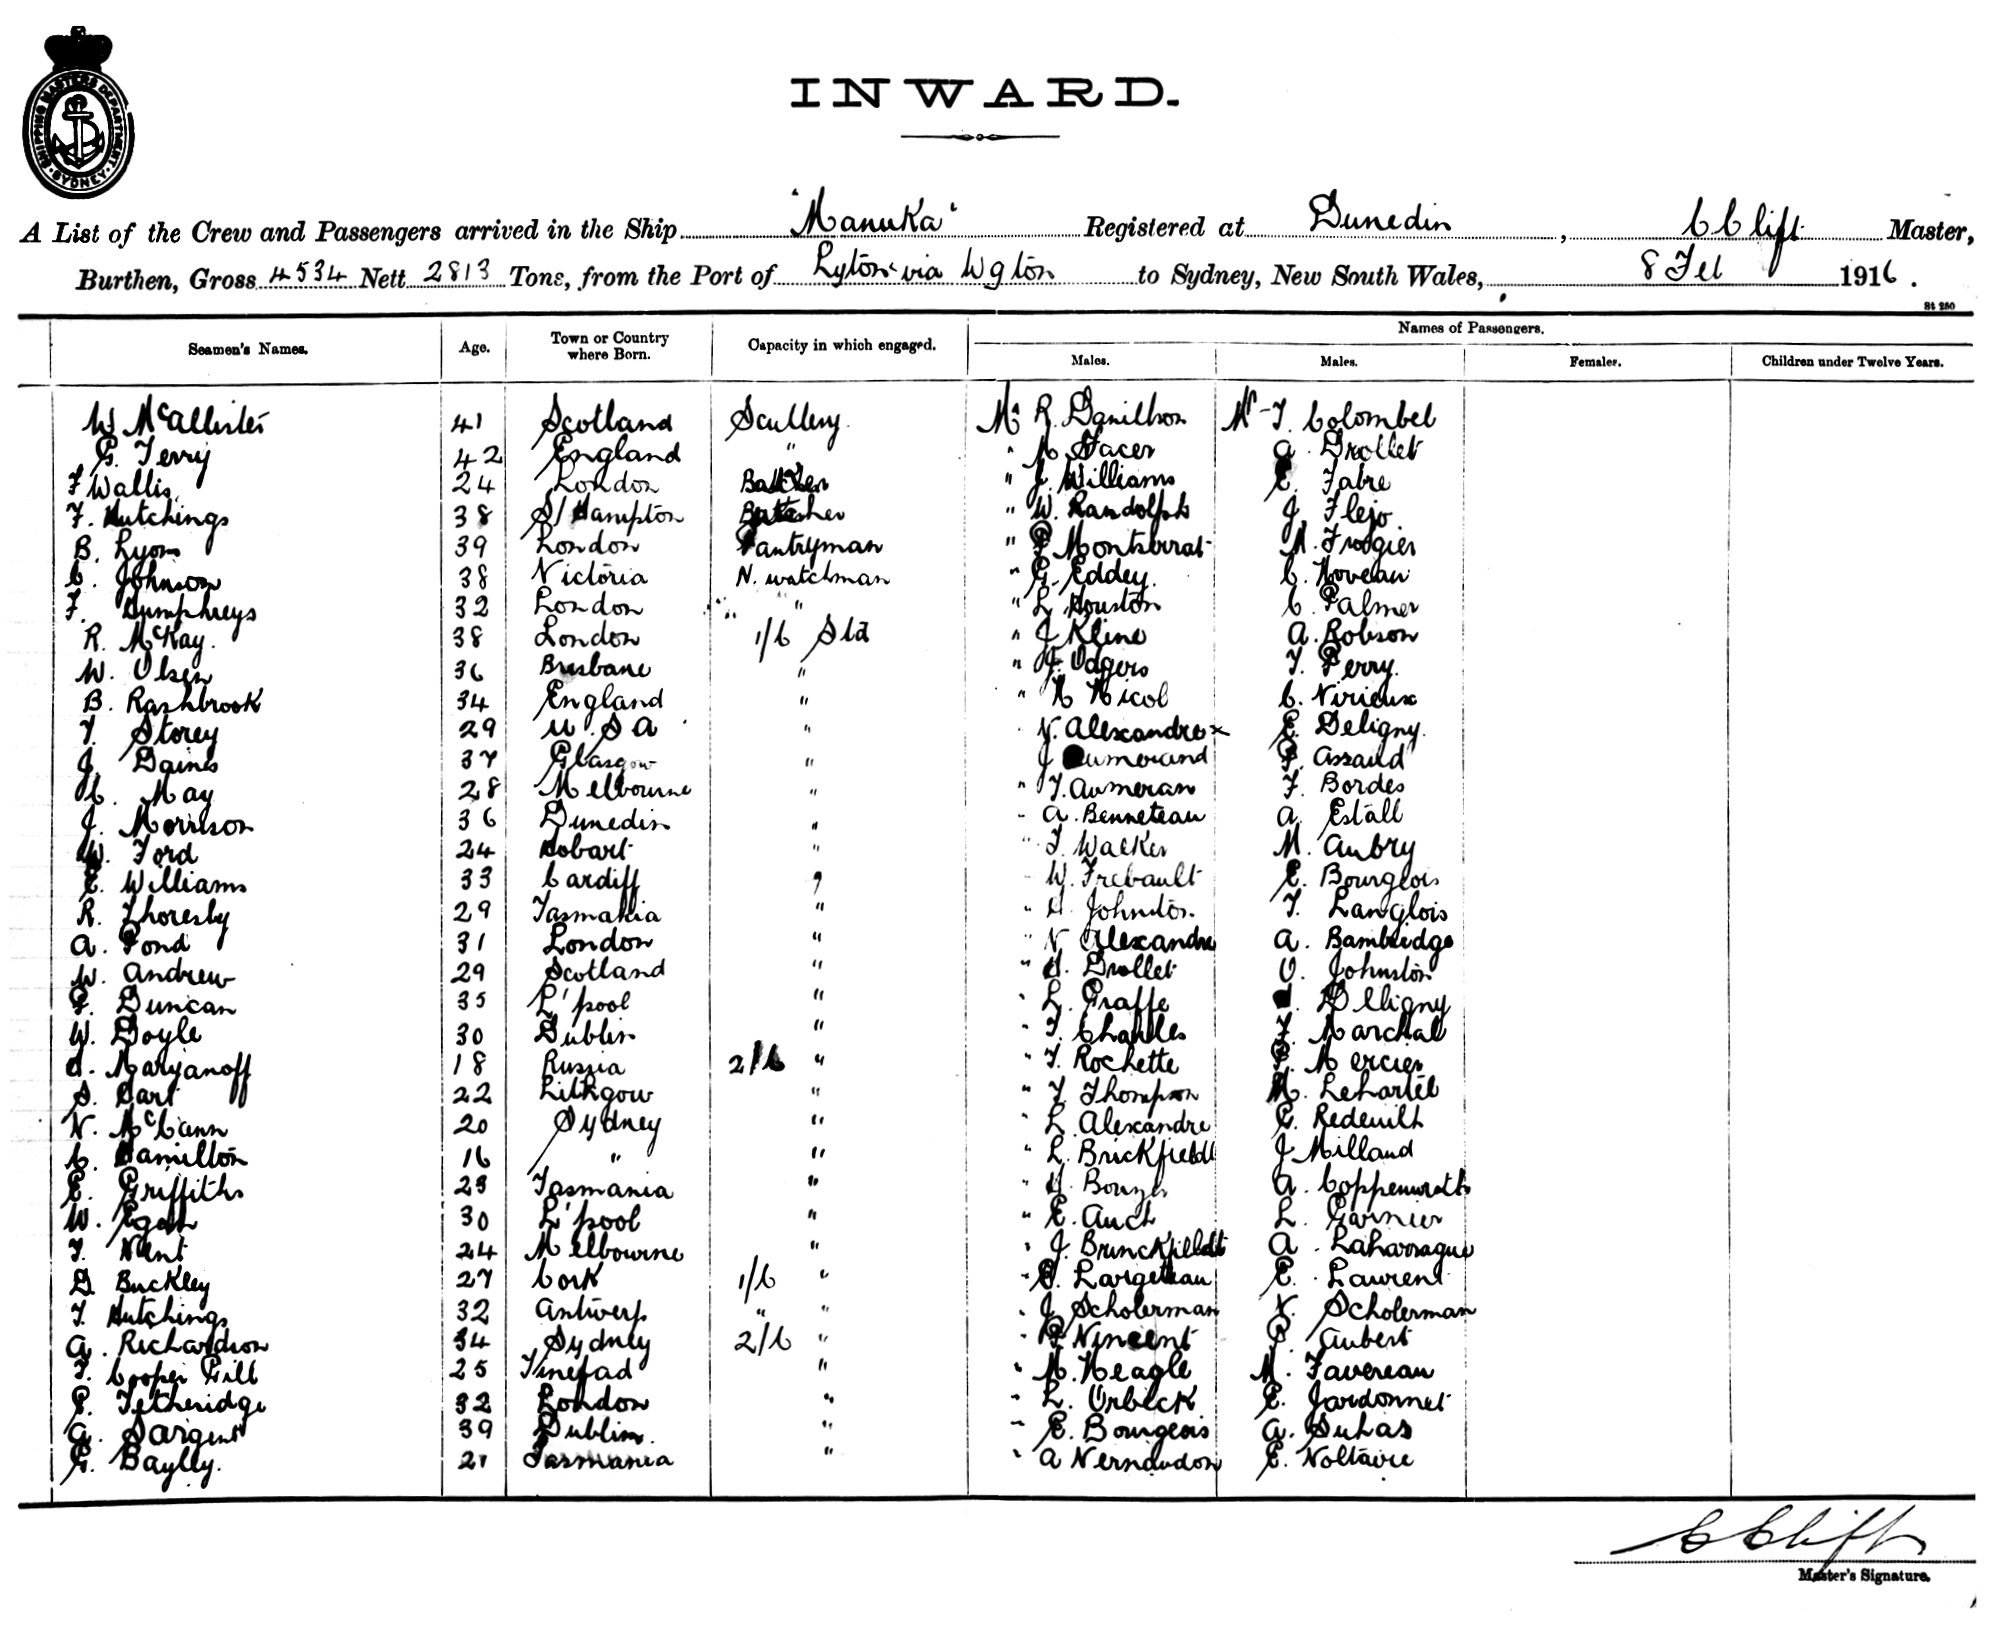 SHIPPING MASTERS DEPARTMENT
SYDNEY
INWARD.
A List of the Crew and Passengers arrived in the Ship "Manuka" Registered at Dunedin, C Clift Master,
Burthen, Gross 4534 Nett 2813 Tons, from the Port of Lyton via Wgton to Sydney, New South Wales, 8 Feb 1916.
St 250
Names of Passengers.
Seamen's Names. Age. Town or Country where Born. Capacity in which engaged. Males. Males. Females. Children under Twelve Years.
W. McAllister 41 Scotland Scullery Mr R. Danillson Mr T. Colombel
G. Terry 42 England " " Facer A. Drollet
F Wallis 24 London Butcher " J. Williams E. Fabre
F. Hutchings 38 S/Hampton Butcher " W. Randolph J. Flejo
B. Lyons 39 London Pantryman " P Montserrat M. Frogier
C. Johnson 38 Victoria N. watchman " G. Eddey. C. Hoveau
F. Humphreys 32 London " " L Houston C. Palmer
R. McKay. 38 London 1/6 Std " J Kline A. Robson
W. Olsen 36 Brisbane " " J. Odgers T. Perry.
B. Rashbrook 34 England " " H Nicol C. Virieux
T. Storey 29 U.S.A " " V. Alexandre x E. Deligny.
J. Daines 37 Glasgow " J Aumerand P. Assaud
C. May 28 Melbourne " " T. Aumeran F. Bordes
J. Morrison 36 Dunedin " " A. Benneteau A. Estall
W. Ford 24 Hobart " " T. Walker M. Aubry
E. Williams 33 Cardiff " " W. Frebault E. Bourgeois
R. Thoresby 29 Tasmania " " H. Johnston T. Langlois
A. Pond 31 London " " V Alexandre A. Bambridge
W. Andrew 29 Scotland " " H. Drollet O. Johnston
P. Duncan 35 L'pool " " L. Graffe Deligny
W. Doyle 30 Dublin " " T. Charles F. Marchal
A. Maryanoff 18 Russia 2/6 " " T. Rochette P. Mercier
S. Dart 22 Lithgow " " T. Thompson M. Lehartel
N. McCann 20 Sydney " " L. Alexandre E. Redeuilt
C. Hamilton 16 " " " L. Brickfieldt J Milland
E. Griffiths 23 Tasmania " " H. A. Coppenrath
W. Egan 30 L'pool " " E. Auch L. Garnier
T. Hunt 24 Melbourne " " J. Brinckfieldt A. Laharrague
D. Buckley 27 Cork 1/6 " " E. Largeteau E. Laurent
T. Hutchings 32 Antwerp " " " J Scholerman V. Scholerman
A. Richardson 34 Sydney 2/6 " " P Vincent P. Aubert
T. Cooper Gill 25 Trinidad " " M. Heagle M. Favereau
P. Tetheridge 32 London " " L. Orbeck E. Jardonnet
A. Sargent 39 Dublin. " " E. Bourgeois A. Suhas
G. Baylly. 21 Tasmania " " A Vernaudon E. Voltaire
C Clift
Master's Signature.